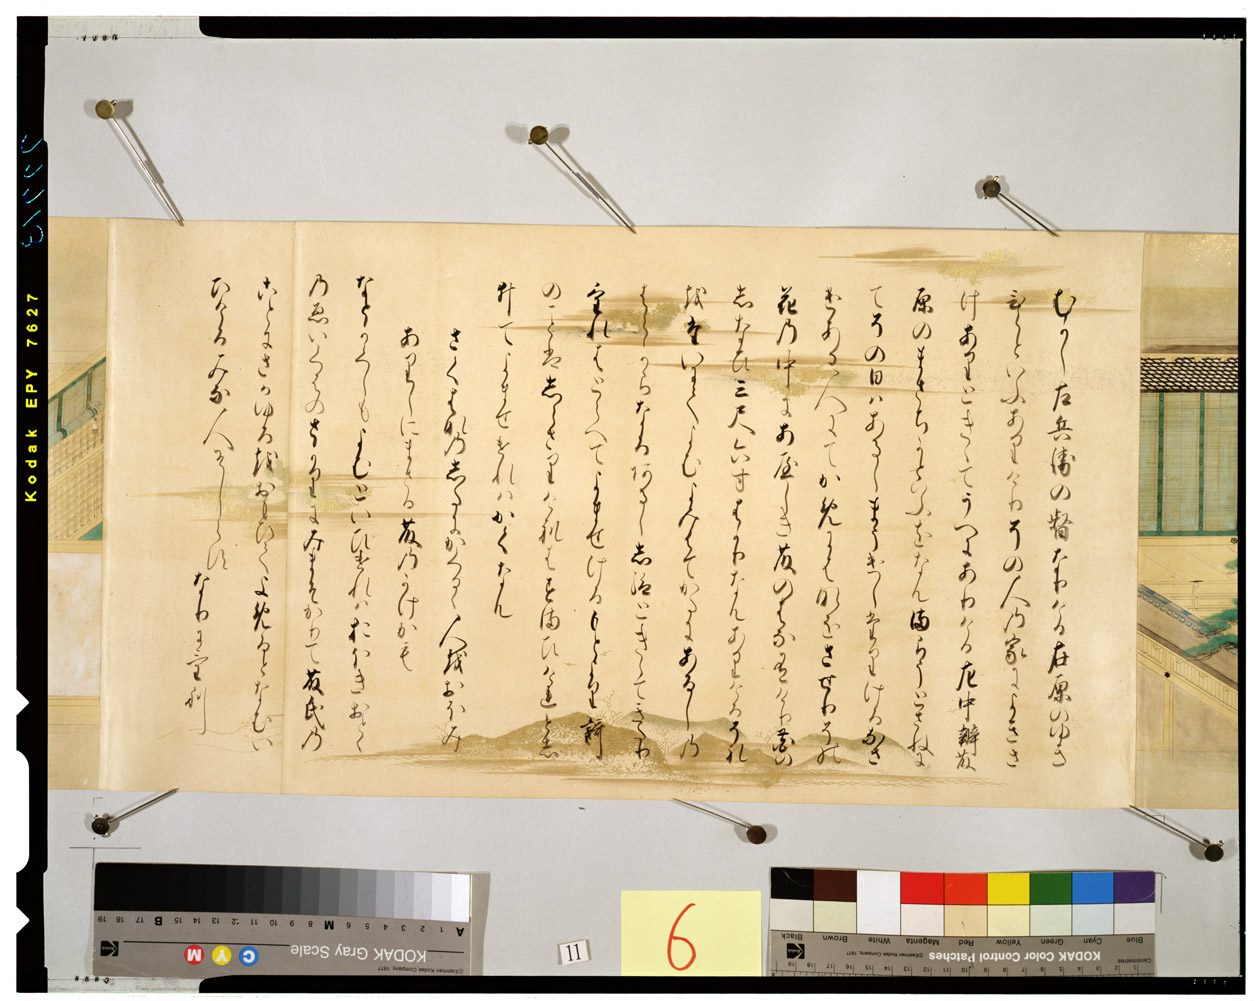 むかし左兵衛の督なりける在原のゆき
ひらといふありけりその人の家によきさ
けありときゝてうへにありける左中辨藤
原のまさちかといふをなんまらうとさねに
てその日はあるしまうけしたりけるなさ
けある人にてかめにはなをさせりその
花の中にあやしき藤のはなありけり花の
しなひ三尺六寸はかりなんありけるそれ
を たいにてよむよみはてかたにあるしの
はらからなるあるまし給ときゝてきたり
けれはとらへてよませけるもとより哥
のことはしらさりけれはすまひけれとし
ゐてよませけれはかくなん
さくはなのしたにかくるゝ人をおほみ
ありしにまさる藤のかけかも
なとかくしもよむといひけれはおほきおとゝ
の恵いくわのさかりにみまそかりて藤氏の
ことにさかゆるをおもひてよめるとなむい
ひけるみな人そしらす
なりにけり
Kodak EPY 7627
11
6
KODAK Gray Scale
C Y M
©Eastman Kodak Company, 1977
A 1 2 3 4 5 6 M 8 9 10 11 12 13 14 15 B 17 18 19
KODAK Color Control Patches
©Eastman Kodak Company, 1977
Blue Cyan Green Yellow Red Magenta White Brown Black
Centimetres